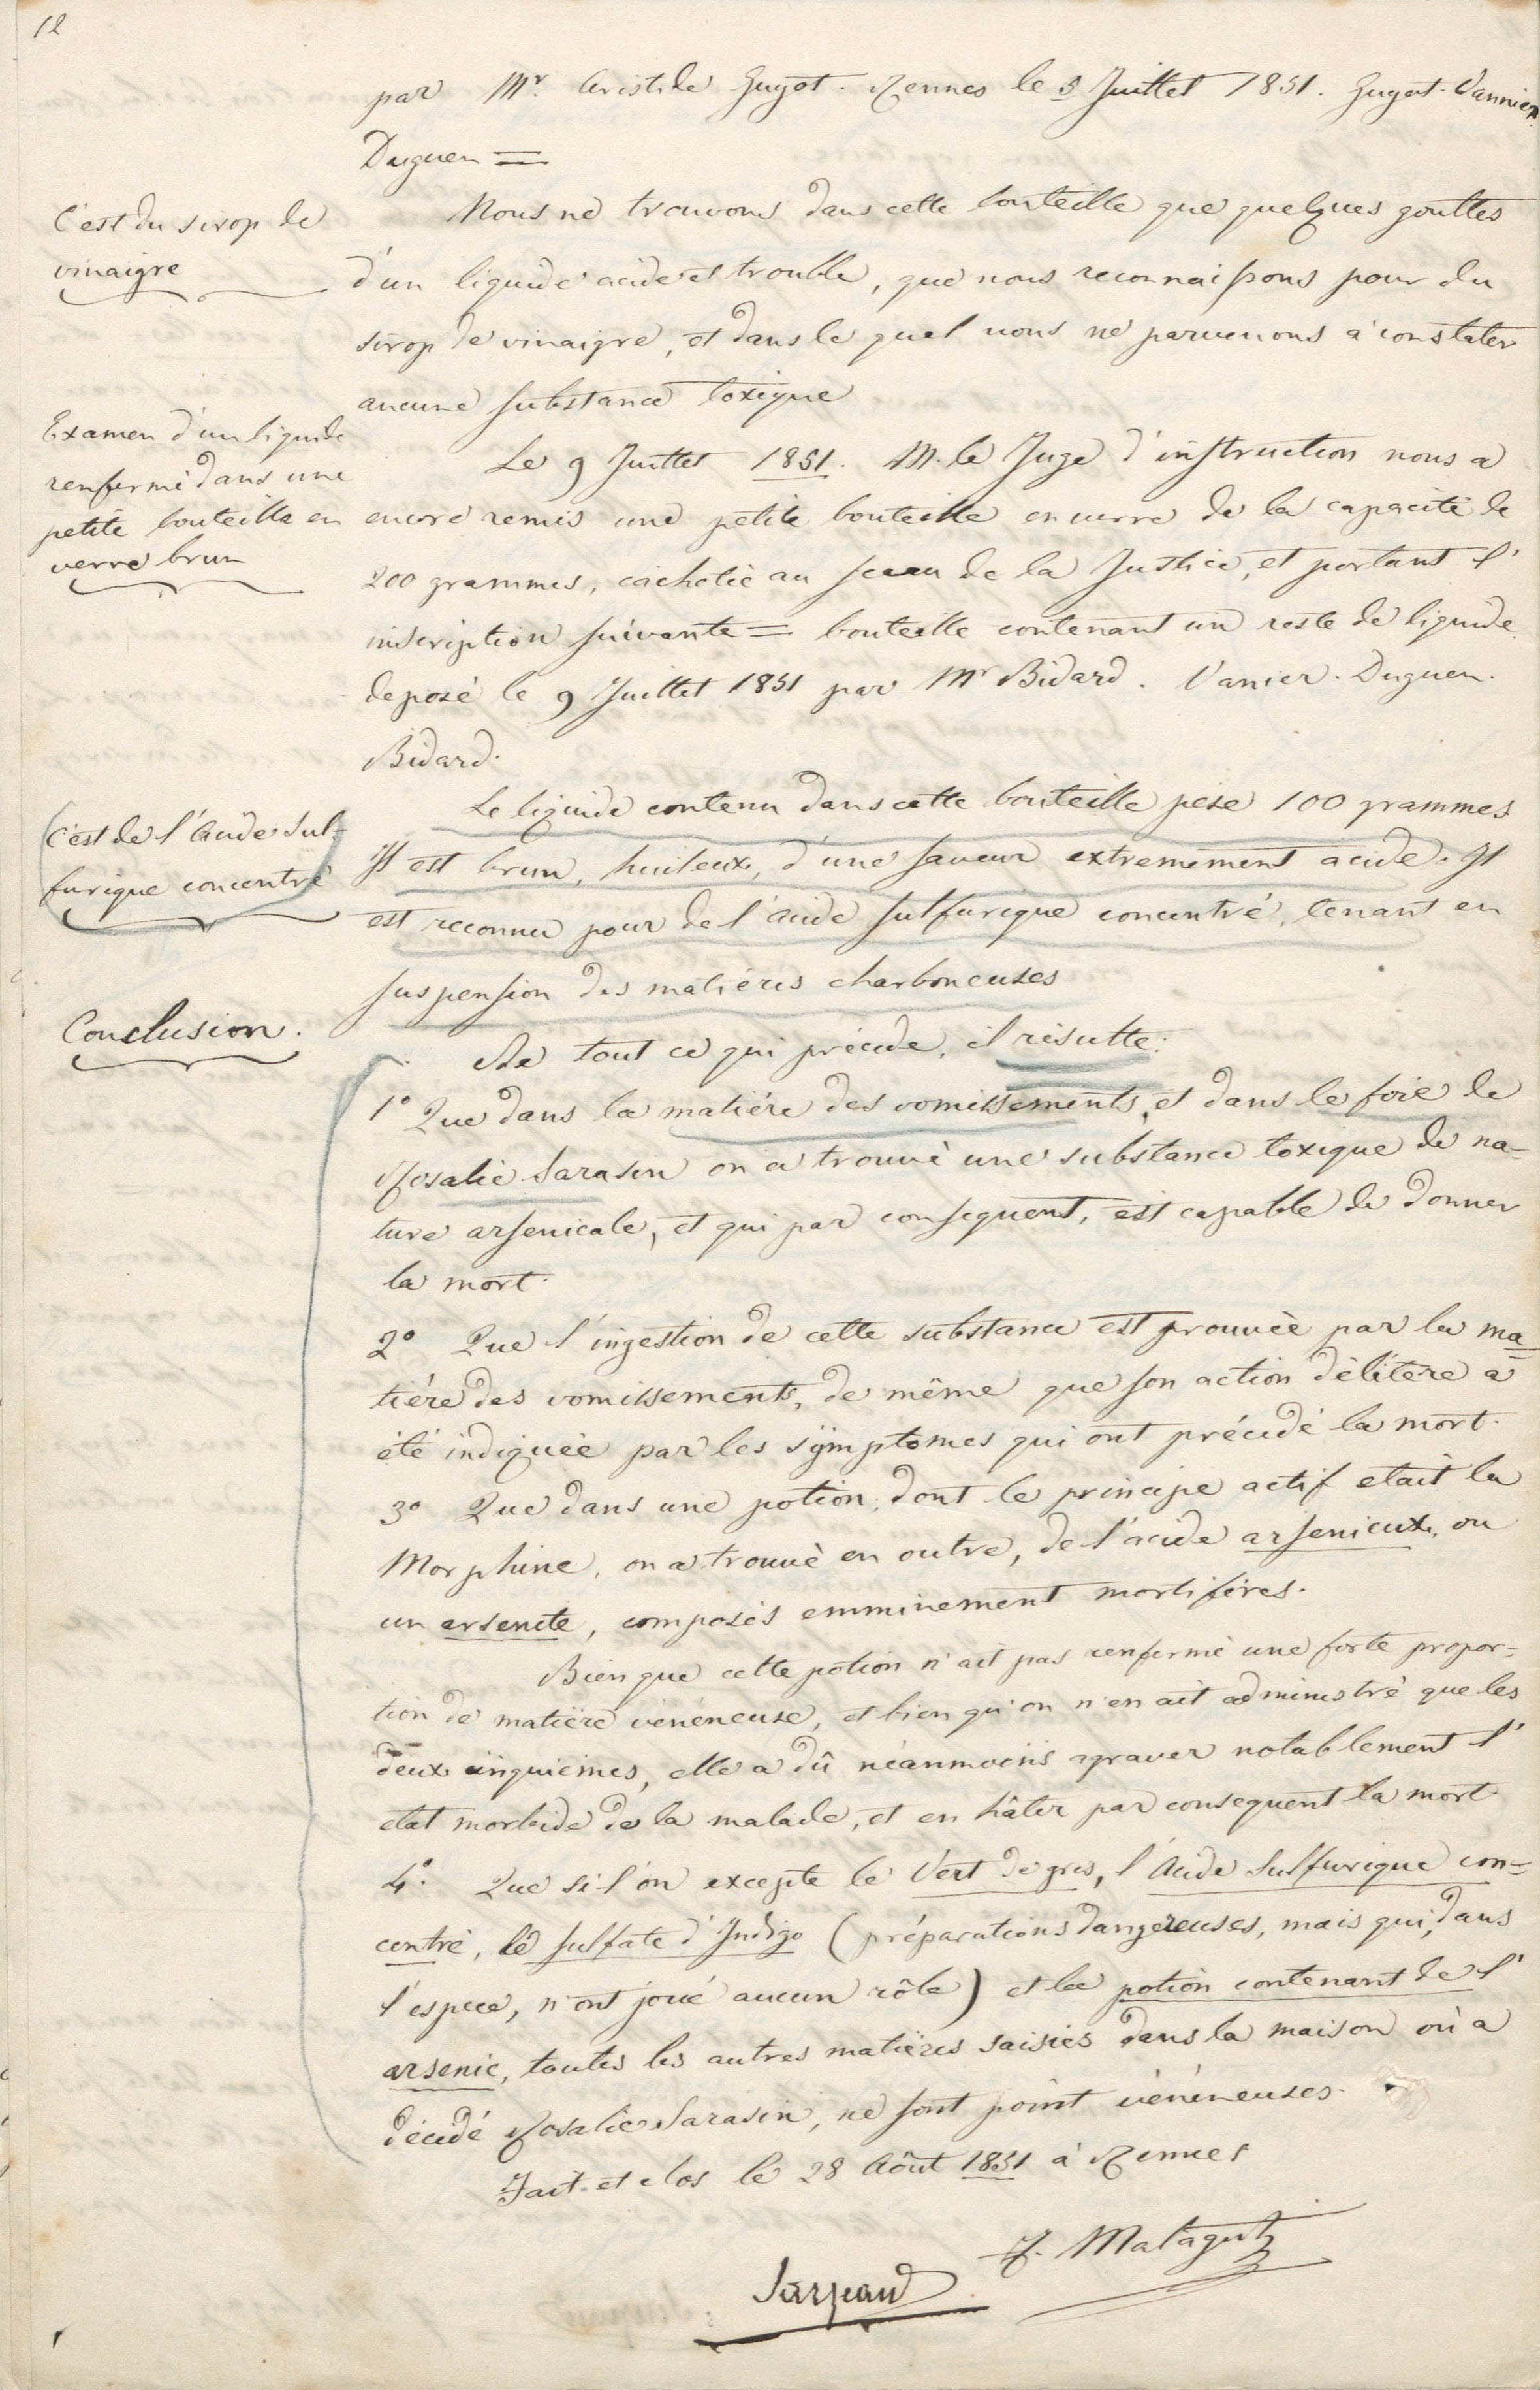 12
par Mr. Aristide Guyot. Rennes le 5 Juillet 1851. Guyot. Vannier
Duguen =
C'est du sirop de
vinaigre
Nous ne trouvons dans cette bouteille que quelques gouttes
d'un liquide acide et trouble, que nous reconnaissons pour du
sirop de vinaigre, et dans le quel nous ne parvenons à constater
aucune substance toxique
Examen d'un liquide
renfermé dans une
petite bouteille en
verre brun
Le 9 Juillet 1851. M. le Juge d'instruction nous a
encore remis une petite bouteille en verre de la capacité de
200 grammes, cachetée au sceau de la Justice, et portant l'
inscription suivante = bouteille contenant un reste de liquide
deposé le 9 Juillet 1851 par Mr Bidard. Vanier. Duguen.
Bidard.
C'est de l'Acide Sul-
furique concentré
Le liquide contenu dans cette bouteille pese 100 grammes
Il est brun, huileux, d'une saveur extremement acide. Il
est reconnu pour de l'acide sulfurique concentré, tenant en
suspension des matières charboneuses
Conclusion.
De tout ce qui précède, il résulte:
1° Que dans la matière des vomissements, et dans le foie de
Rosalie Sarasin on a trouvé une substance toxique de na-
ture arsenicale, et qui par consequent, est capable de donner
la mort.
2° Que l'ingestion de cette substance est prouvée par la ma
tière des vomissements, de même que son action délétère a
été indiquée par les symptomes qui ont précédé la mort.
3° Que dans une potion, dont le principe actif etait la
Morphine, on a trouvé en outre, de l'acide arsenieux, ou
un arsenite, composés emminement mortifères.
Bien que cette potion n'ait pas renfermé une forte propor=
tion de matière vénéneuse, et bien qu'on n'en ait administré que les
deux cinquièmes, elle a dû néanmoins agraver notablement l'
etat morbide de la malade, et en hâter par consequent la mort.
4°. Que si l'on excepte le Vert de gris, l'Acide Sulfurique con=
centré, le sulfate d'Indigo (préparations dangereuses, mais qui, dans
l'espece, n'ont joué aucun rôle) et la potion contenant de l'
arsenic, toutes les autres matières saisies dans la maison où a
décédé Rosalie Sarasin, ne sont point vénéneuses.
Fait et clos le 28 Août 1851 à Rennes
F. Malaguti
Sarzeaud